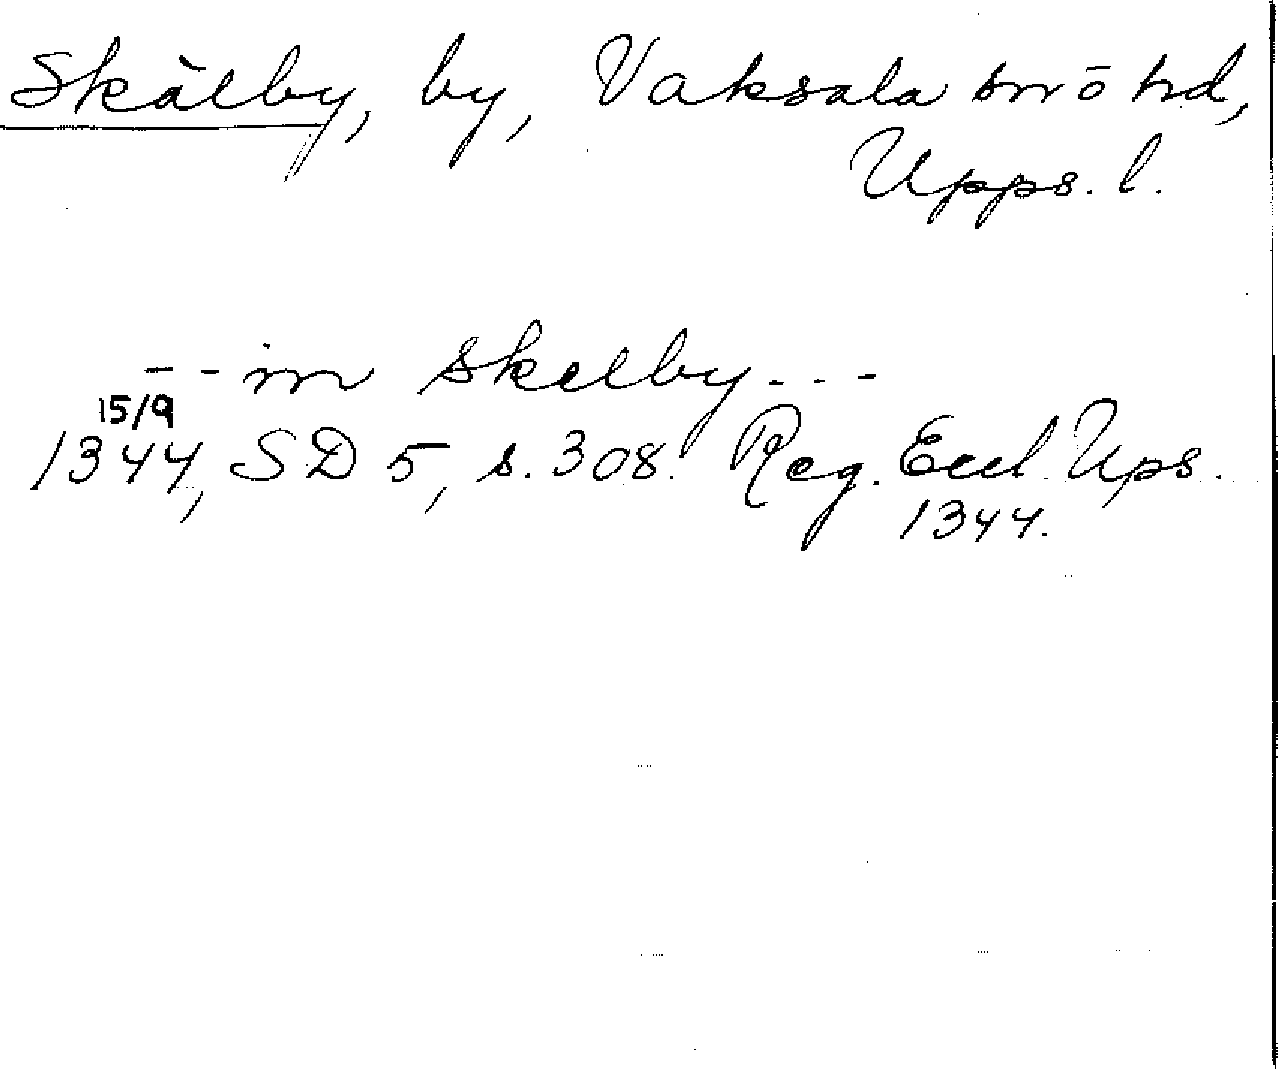 Skälby, by, Vaksala sn o hd,
Upps. l.
- - in Skelby - - -
15/9
1344, SD 5, s. 308. Reg. Eccl. Ups.
1344.